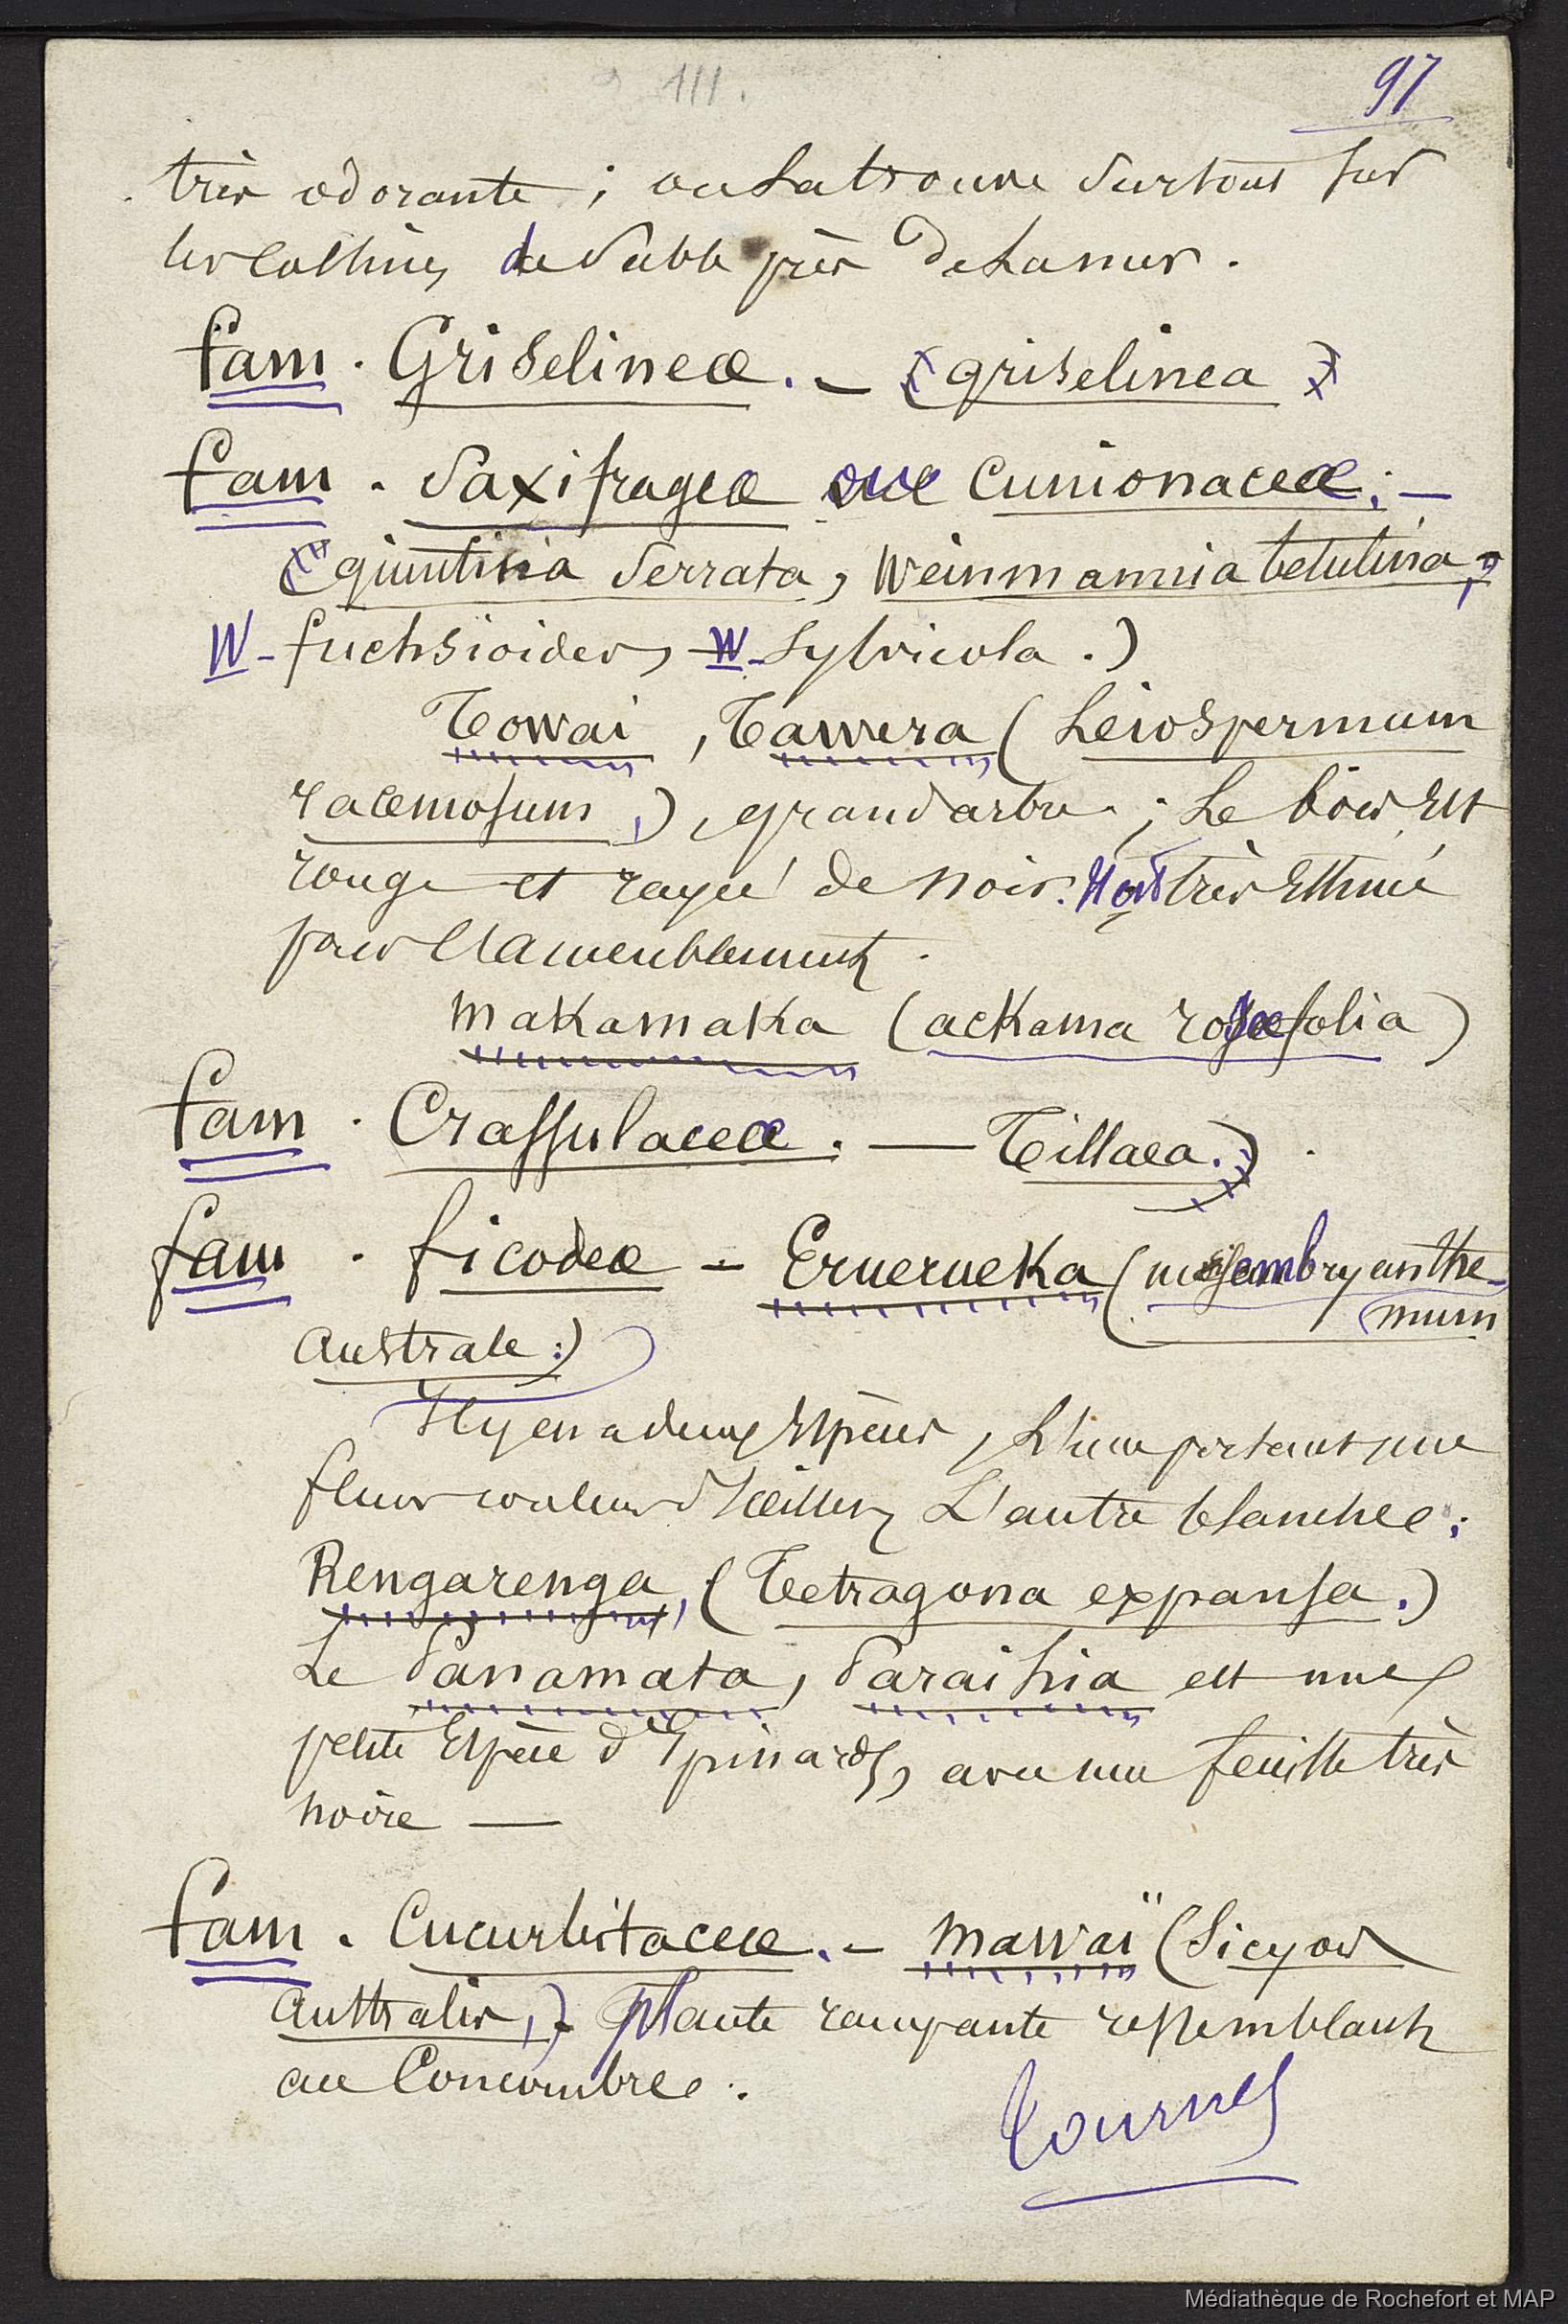 111.
97
très odorante ; on la trouve surtout sur
les collines de sable près de la mer.
fam. Griselineæ. — (griselinea)
fam. Saxifrageæ ou Cunionaceæ; —
(quintinia Serrata, Weinmannia betulina,
W- fuchsioides, W- Sylvicola.)
Towai, Tawera (Leiospermum
racemosum,), grand arbre ; Le bois est
rouge et rayé de noir. très estimé
pour l'ameublement.
makamaka (ackama rosæfolia)
fam. Crassulaceæ. — Tillaea.)
fam. ficodeæ — Eruerueka (mesembryanthe-
mum
Australe:)
Il y en a deux espèces, L'une portant une
fleur couleur d'œillet, L'autre blanche;
Rengarenga, (Tetragona expansa.)
Le Panamata, Paraihia est une
petite Espèce d'Epinards, avec une feuille très
noire —
fam. Cucurbitaceæ. — mawaï (Sicyos
australis,) Plante rampante ressemblant
au Concombre.
Tournez
Médiathèque de Rochefort et MAP